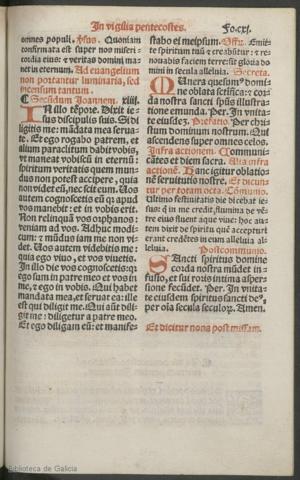 In vigilia pentecostes.
Fo.cxj.
omnes populi. ℣sus. Quoniam
confirmata est super nos miseri-
cordia eius: ⁊ veritas domini ma
net in eternum. Ad euangelium
non portantur luminaria, sed
incensum tantum.
Secundum Joannem. xiiij.
In illo tẽpore. Dixit ie-
sus discipulis suis. Si di
ligitis me: mãdata mea serua-
te. Et ego rogabo patrem, et
alium paraclitum dabit vobis,
vt maneat vobiscũ in eternũ:
spiritum veritatis quem mun-
dus non potest accipere, quia
non videt eũ, nec scit eum. Uos
autem cognoscetis eũ: q̃ apud
vos manebit: et in vobis erit.
Non relinquã vos orphanos:
veniam ad vos. Adhuc modi-
cum: ⁊ mũdus iam me non vi-
det. Uos autem videbitis me:
quia ego viuo, et vos viuetis.
In illo die vos cognoscetis: q̃
ego sum in patre meo et vos in
me, ⁊ ego in vobis. Qui habet
mandata mea, et seruat ea: ille
est qui diligit me. Qui aũt dili-
git me: diligetur a patre meo.
Et ego diligam eũ: et manife-
stabo ei meipsum. Offer. Emit-
te spiritum tuũ ⁊ creabũtur: ⁊ re-
nouabis faciem terre: sit gloria do
mini in secula alleluia. Secreta.
Munera quesumꝰ domi-
ne oblata sctifica: ⁊ cor-
da nostra sancti spũs illustra-
tione emunda. Per. In vnita-
te eiusdẽ. Prefatio. Per chri-
stum dominum nostrum. Qui
ascendens super omnes celos.
Infra actionem. Communi-
cãtes et diem sacra. Alia infra
actionẽ. Hanc igitur oblatio-
nẽ seruitutis nostre. Et dicun-
tur per totam octa. Cõmunio.
Ultimo festiuitatis die dicebat ie-
sus: q̃ in me credit, flumina de vẽ-
tre eius fluent aque viue: hoc aũ
tem dixit de spiritu quẽ accepturi
erant credẽtes in eum alleluia al-
leluia. Postcommunio.
Sancti spiritus domine
corda nostra mũdet in-
fusio, et sui roris intima asper-
sione fecũdet. Per. In vnita-
te eiusdem spiritus sancti deꝰ,
per oĩa secula seculoꝝ. Amen.
Et dicitur nona post missam.
Biblioteca de Galicia